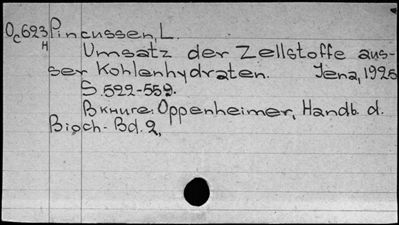 Oc623 Pincussen, L.
H
Umsatz der Zellstoffe aus-
ser Kohlenhydraten. Jena, 1925
S. 522-559.
В книге: Oppenheimer, Handb. d.
Bioch. Bd. 2,